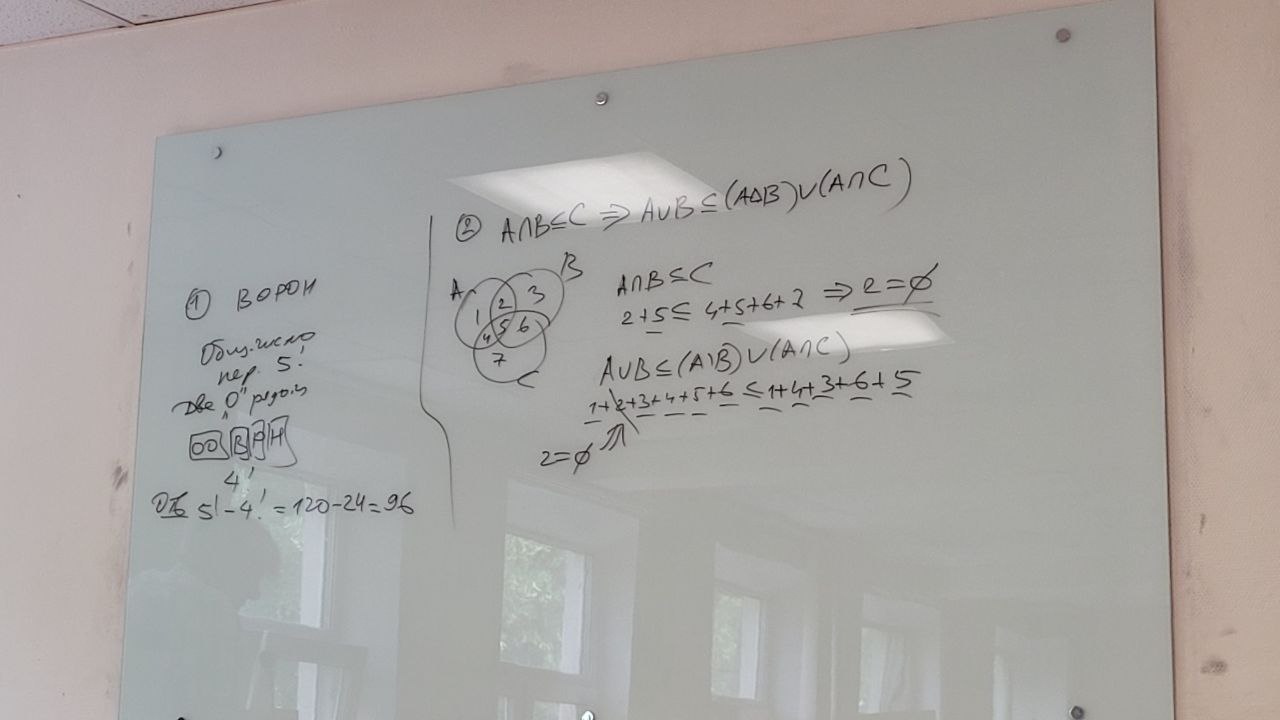 ① ВОРОН
Общ. число
пер. 5!
Две "О" рядом
ОО В Р Н
4!
Отв 5! - 4! = 120 - 24 = 96
② A∩B⊆C ⇒ A∪B⊆(A△B)∪(A∩C)
A B
1 2 3
4 5 6
7
C
A∩B⊆C
2+5⊆ 4+5+6+7 ⇒ 2=∅
A∪B⊆(A\B)∪(A∩C)
1+2+3+4+5+6 ⊆ 1+4+3+6+5
2=∅